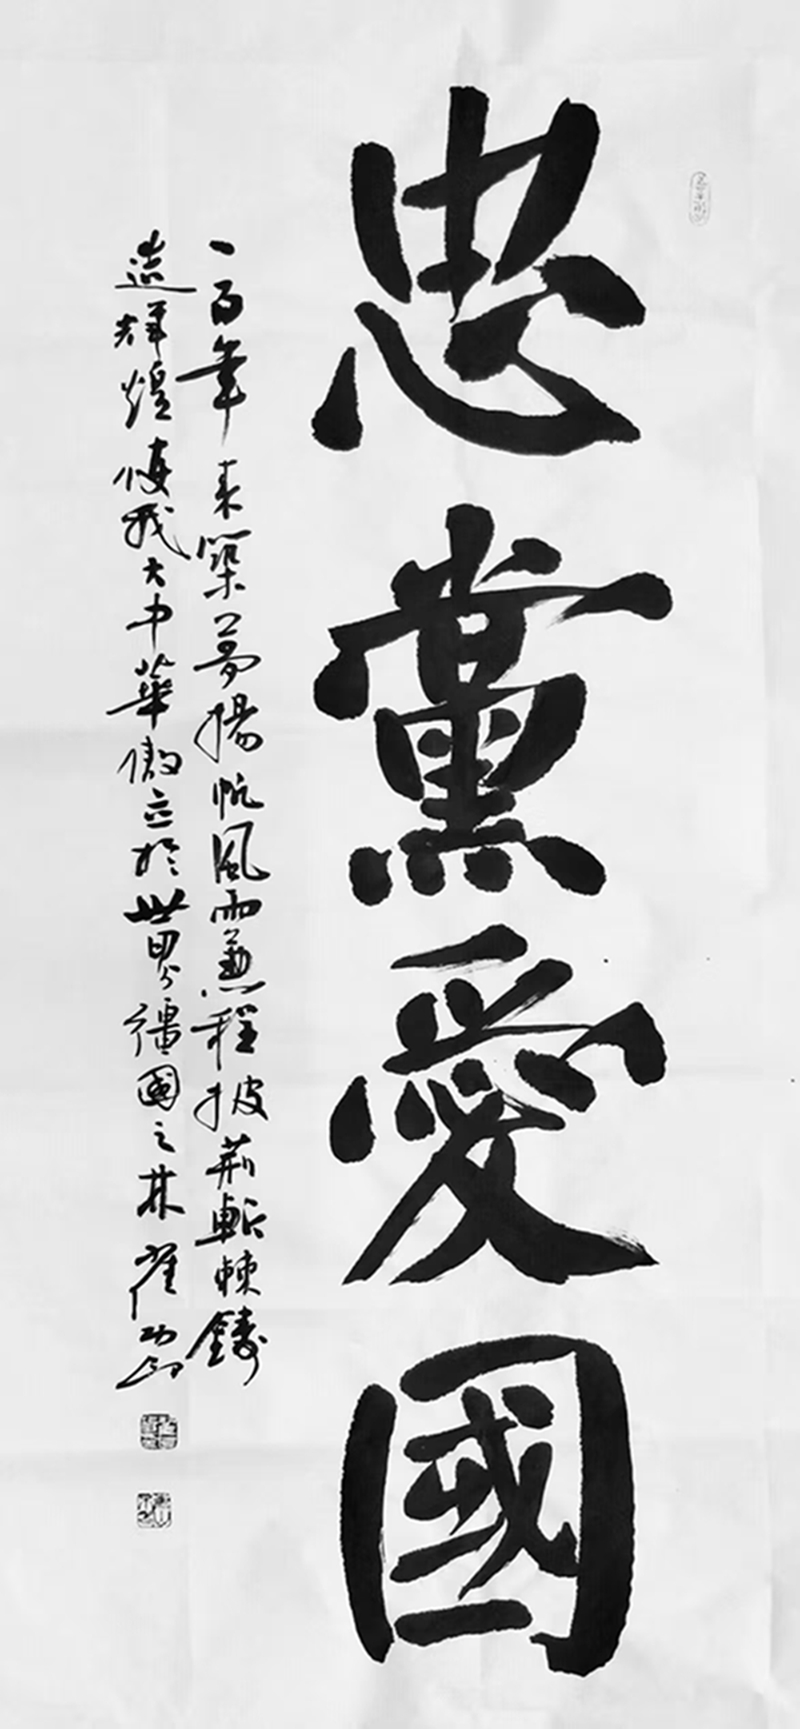 忠黨愛國
一百年来築夢揚帆風雨兼程披荊斬棘鑄
造輝煌使我大中華傲立於世界強國之林崔